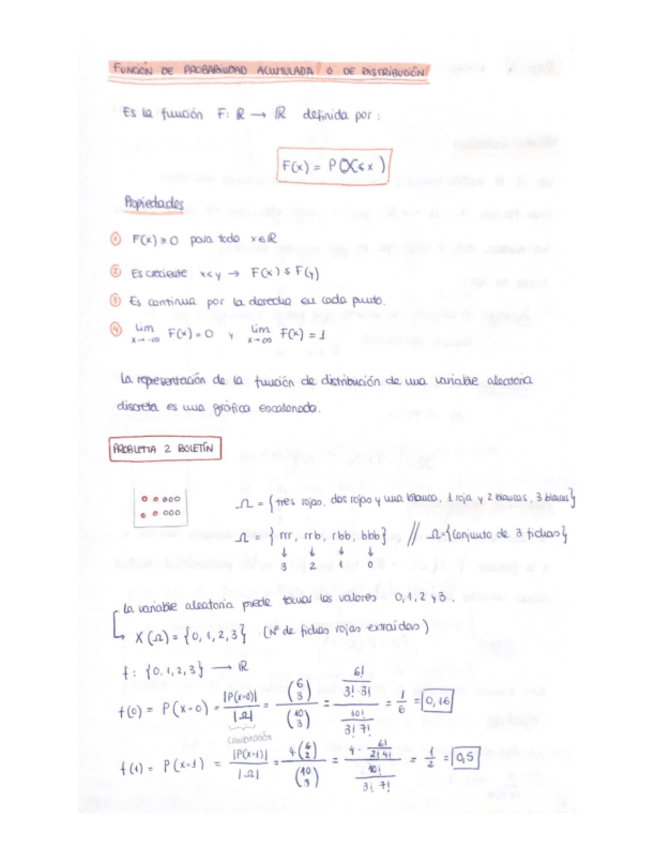 FUNCIÓN DE PROBABILIDAD ACUMULADA O DE DISTRIBUCIÓN
Es la función F: ℝ → ℝ definida por:
F(x) = P(X ≤ x)
Propiedades
① F(x) ≥ 0 para todo x∈ℝ
② Es creciente x<y → F(x) ≤ F(y)
③ Es continua por la derecha en cada punto.
④ lim x→-∞ F(x) = 0 y lim x→∞ F(x) = 1
La representación de la función de distribución de una variable aleatoria
discreta es una gráfica escalonada.
PROBLEMA 2 BOLETÍN
Ω = {tres rojas, dos rojas y una blanca, 1 roja y 2 blancas, 3 blancas}
Ω = {rrr, rrb, rbb, bbb} // Ω={conjunto de 3 fichas}
↓ ↓ ↓ ↓
3 2 1 0
La variable aleatoria puede tomar los valores 0,1,2 y 3.
↳ X(Ω) = {0,1,2,3} (Nº de fichas rojas extraídas)
f: {0,1,2,3} → ℝ
f(0) = P(X=0) = |P(X=0)| / |Ω| = (6 3) / (10 3) = (6! / 3!·3!) / (10! / 3!7!) = 1/6 = 0,16
combinación
f(1) = P(X=1) = |P(X=1)| / |Ω| = 4(6 2) / (10 3) = (4 · 6! / 2!4!) / (10! / 3!7!) = 1/2 = 0,5